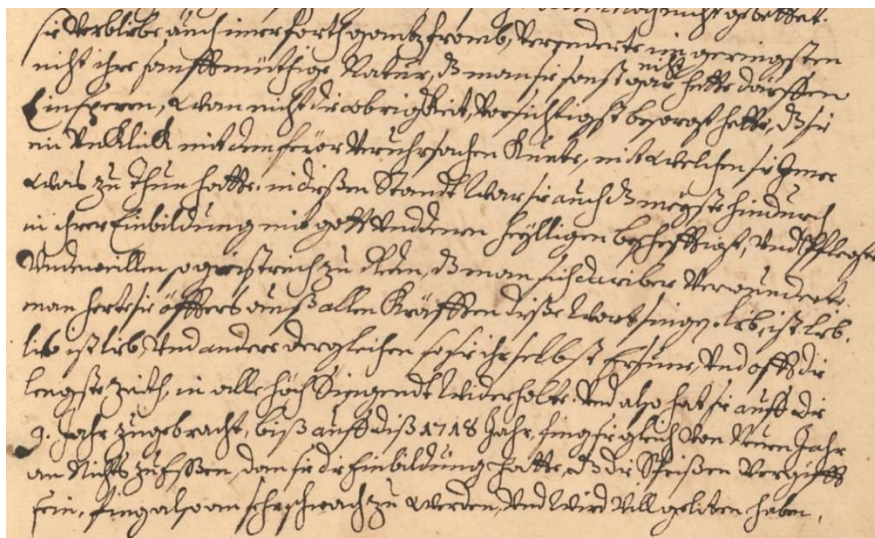 nicht gebettet.
sie verblibe auch imer forth gantz fromb, verenderte im geringsten
nicht ihre sanfftmüthige Natur, dz man sie sonst gar nicht hette därffen
Einsperen, wan nicht die obrigkeit, vorsichtigst besorgt hette, dz sie
ein Unklick mit dem feüor veruhrsachen Kunte, mit welchen sie Imer
was zu thun hatte. in dießen Standt war sie auch dz meiste hindurch
in ihrer Einbildung mit gott und denen heylligen beschefftigt, und pflegte
Underweillen so geistreich zu Reden, dz man sich dariber verwunderte.
man herte sie öffters auß allen Kräfften dieße wort singen. lieb, ist lieb.
lieb ist lieb, und andere dergleichen so sie ihr selbst Ersune, und offt die
lengste zeith, in alle höch Singendt widerholte. und also hat sie auff die
9. Jahr zugebracht, biß auff diß 1718 Jahr, fing sie gleich von Neuen Jahr
an Nichts zu Essen, dan sie die Einbildung hatte, dz die Speißen vergifft
sein, fing also an sehr schwach zu werden, und wird vill geliten haben,